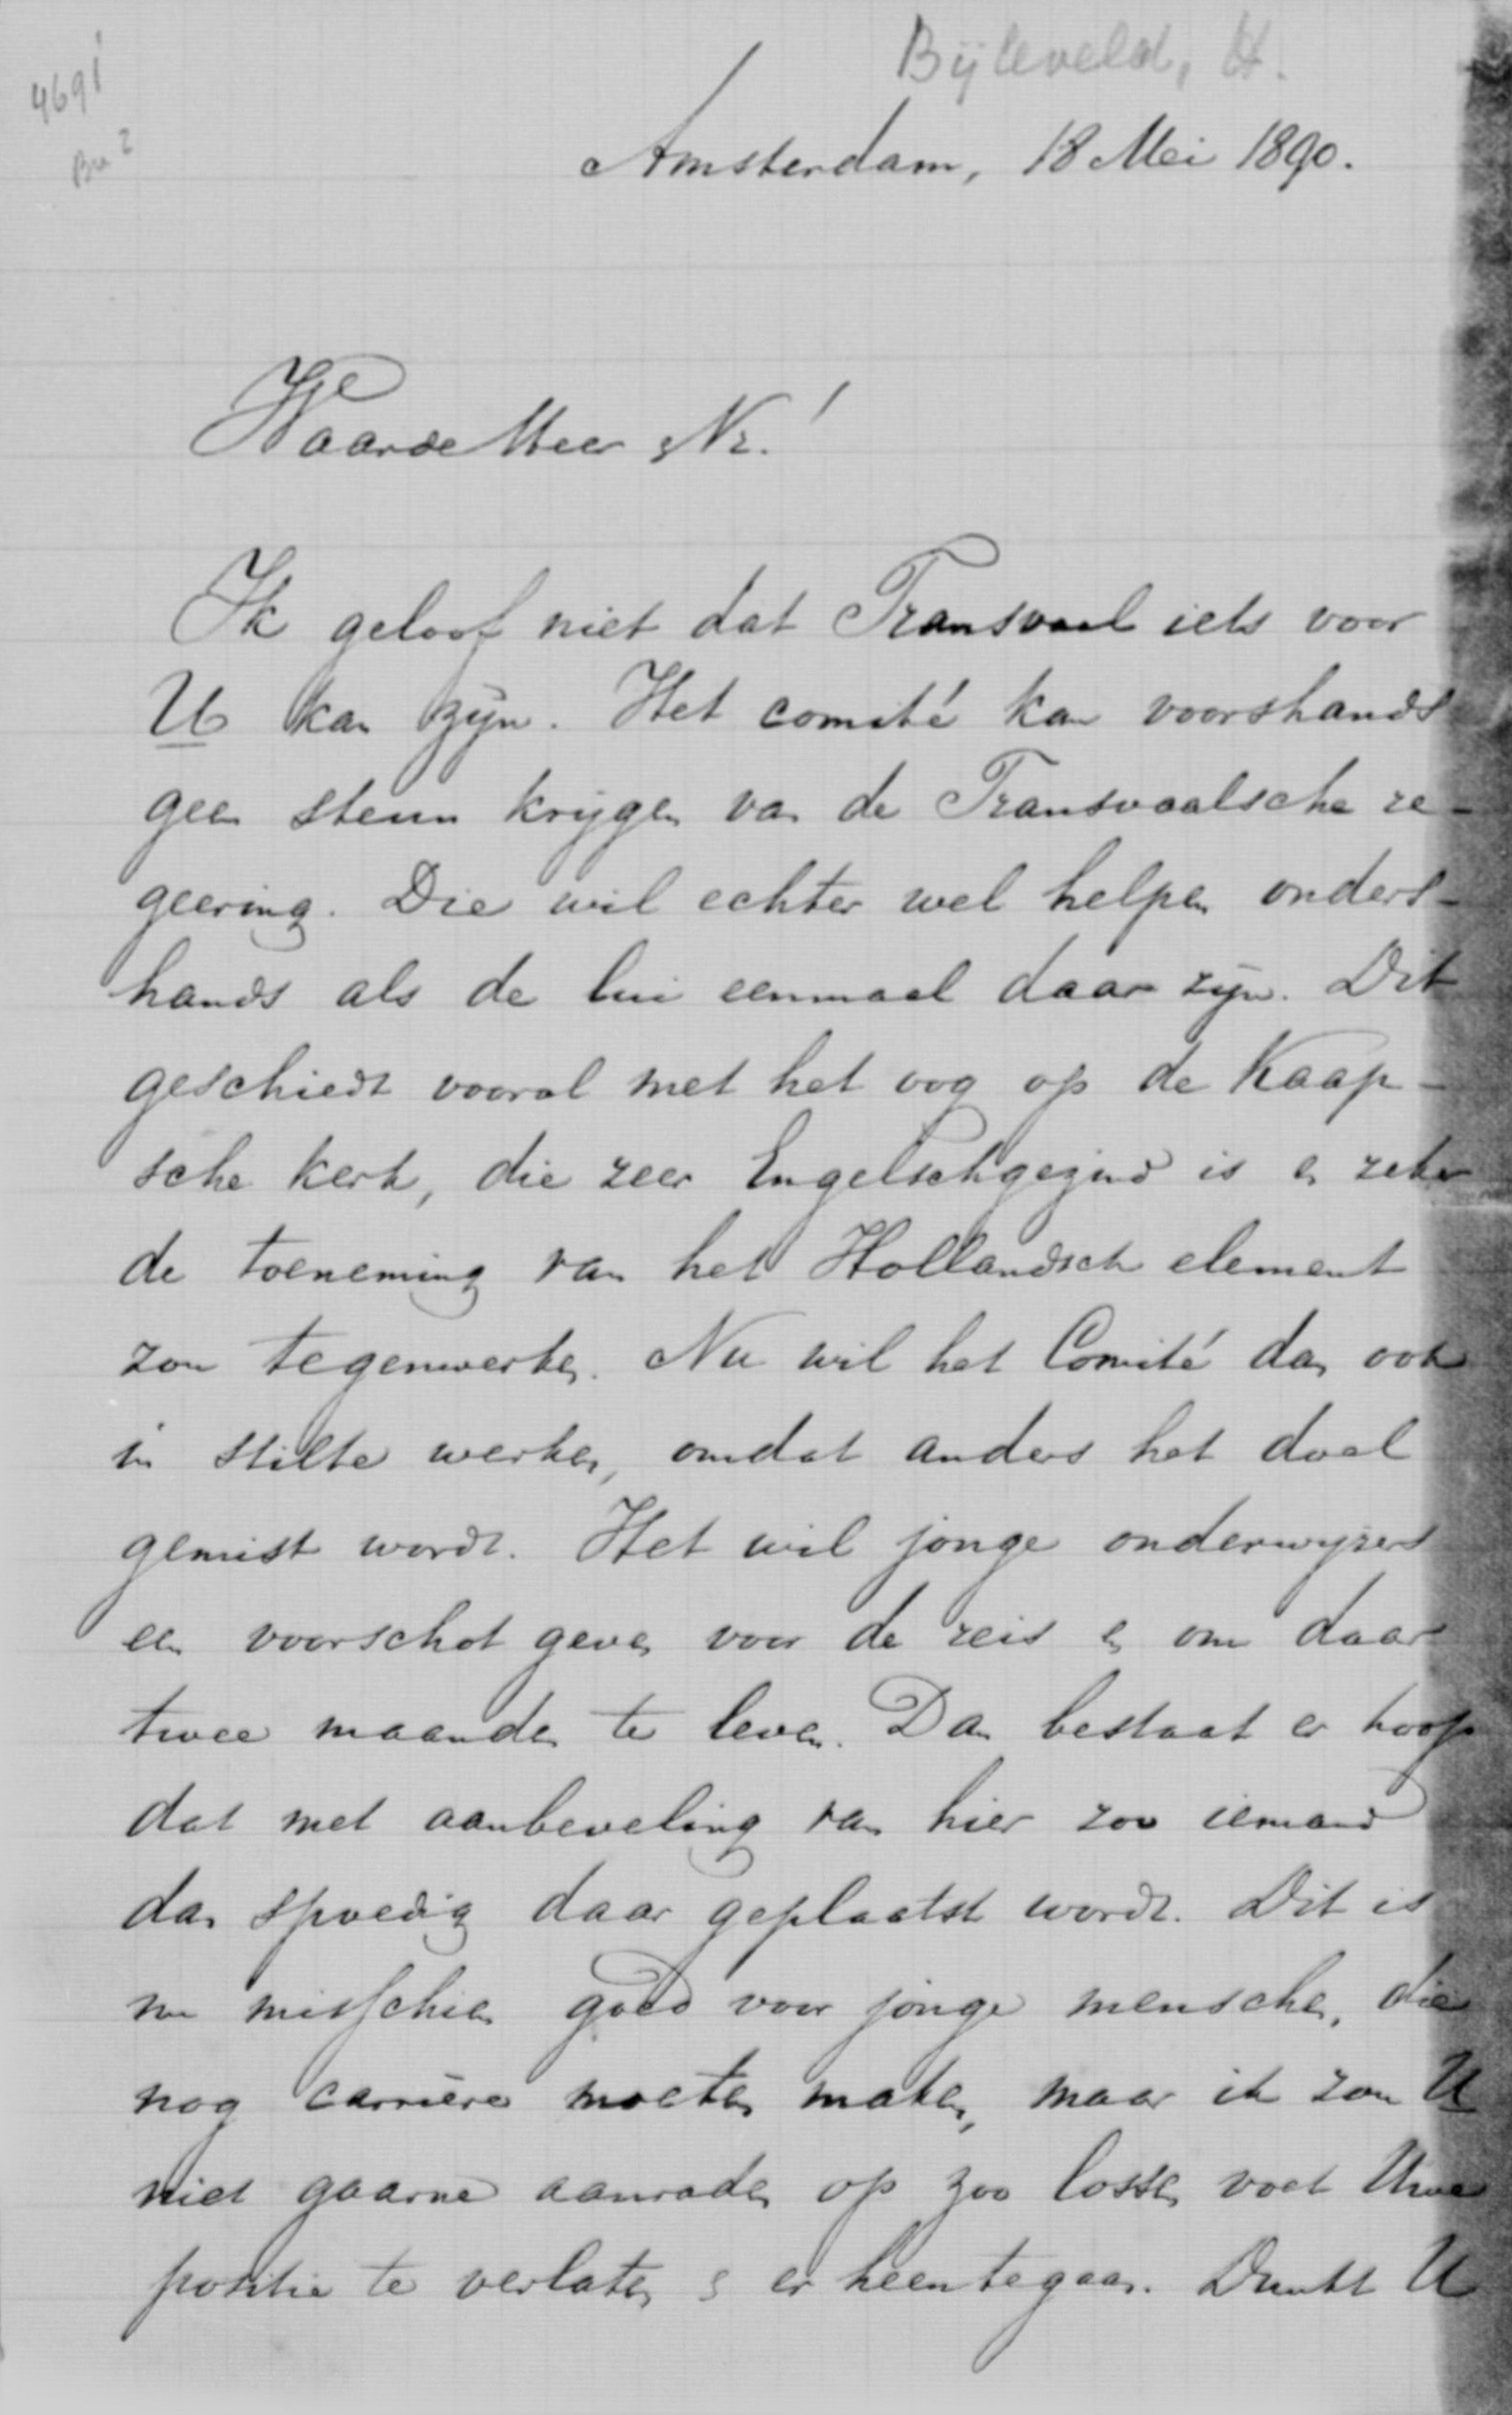 Bijleveld, H.
4691
Amsterdam, 18 Mei 1890.
Waarde Heer N.!
Ik geloof niet dat Transvaal iets voor
U kan zijn. Het comité kan voorshands
geen steun krijgen van de Transvaalsche re-
geering. Die wil echter wel helpen onders-
hands als de lui eenmaal daar zijn. Dit
geschiedt vooral met het oog op de Kaap-
sche kerk, die zeer Engelschgezind is en zeker
de toeneming van het Hollandsch element
zou tegenwerken. Nu wil het Comité dan ook
in stilte werken, omdat anders het doel
gemist wordt. Het wil jonge onderwijzers
een voorschot geven voor de reis en om daar
twee maanden te leven. Dan bestaat er hoop
dat met aanbeveling van hier zoo iemand
dan spoedig daar geplaatst wordt. Dit is
nu misschien goed voor jonge menschen, die
nog carrière moeten maken, maar ik zou U
niet gaarne aanraden op zoo losse voet Uwe
positie te verlaten en er heen te gaan. Dunkt U